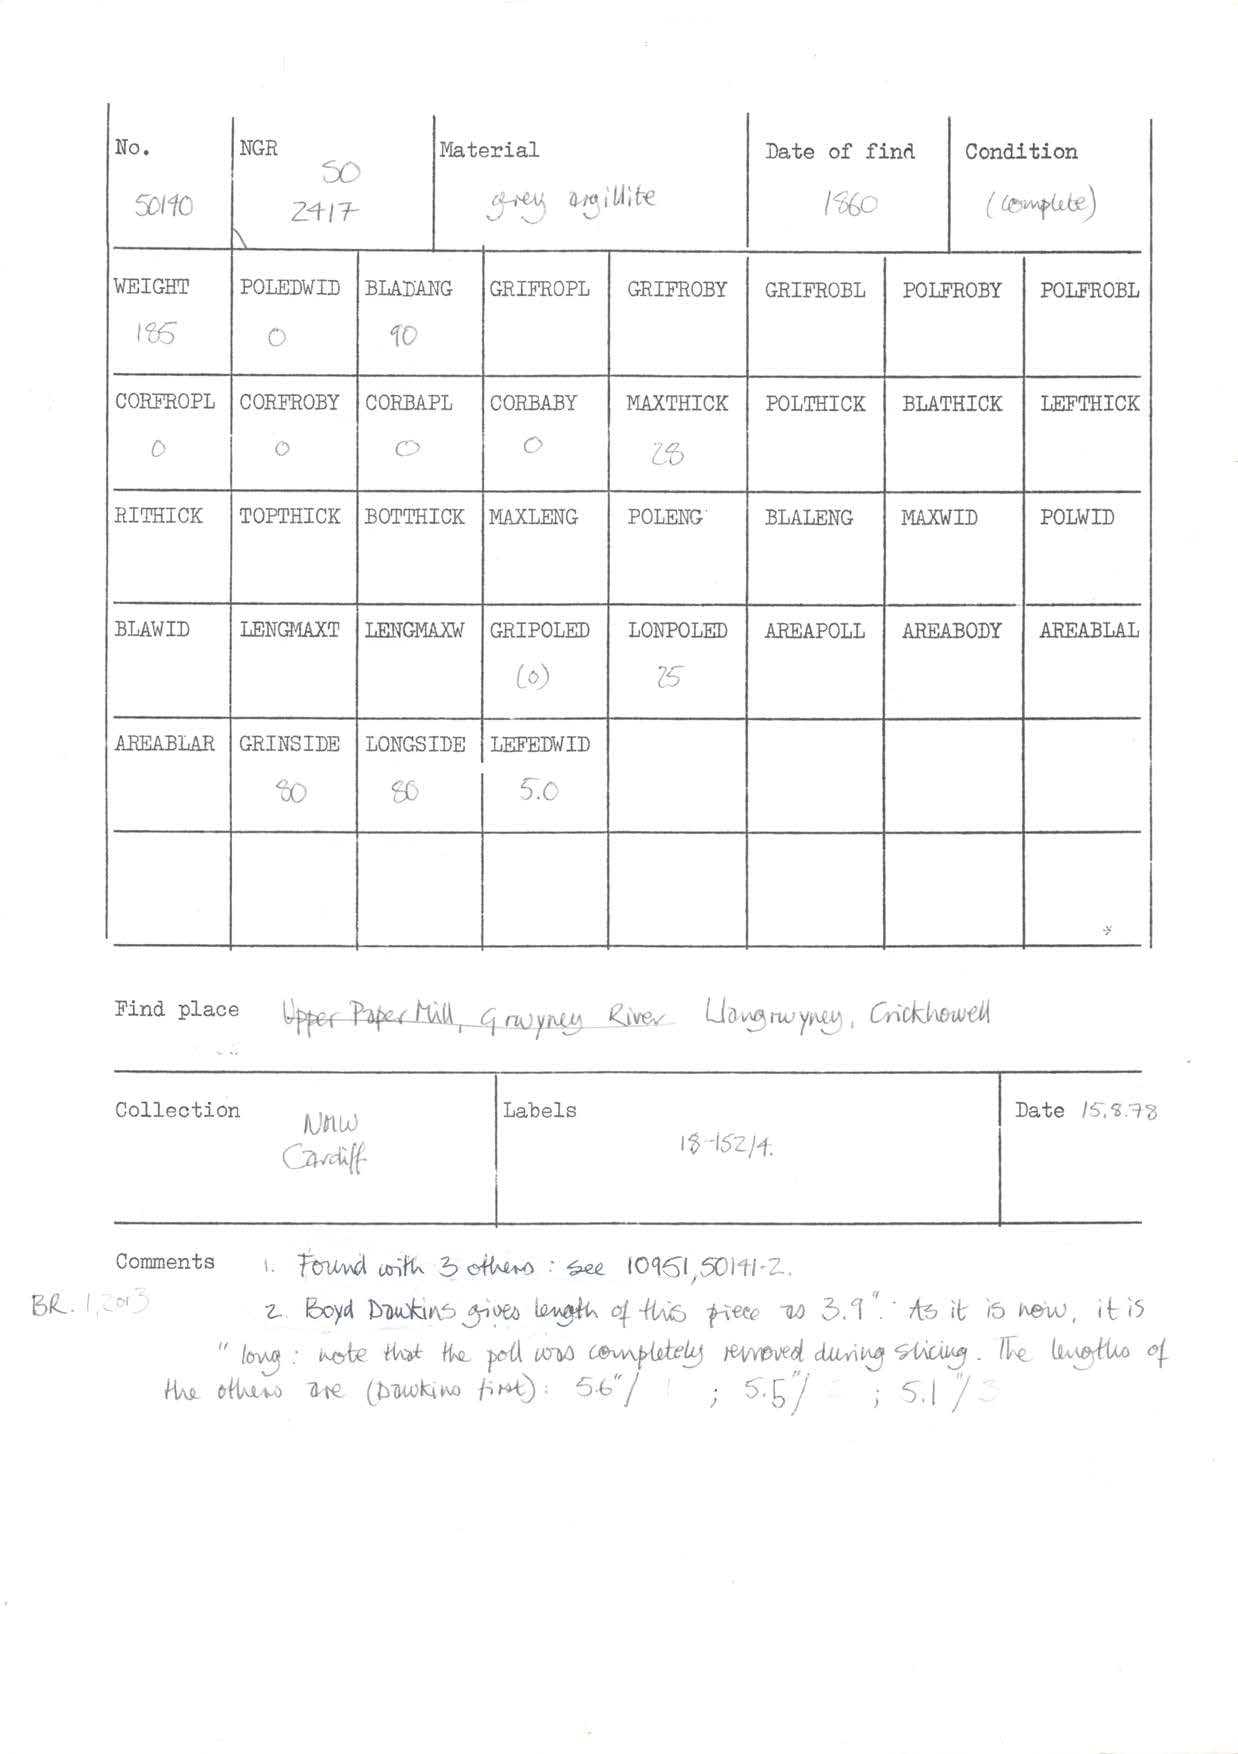 No. NGR Material Date of find Condition
SO
50140 2417 grey argillite 1860 (complete)
WEIGHT POLEDWID BLADANG GRIFROPL GRIFROBY GRIFROBL POLFROBY POLFROBL
185 0 90
CORFROPL CORFROBY CORBAPL CORBABY MAXTHICK POLTHICK BLATHICK LEFTHICK
0 0 0 0 28
RITHICK TOPTHICK BOTTHICK MAXLENG POLENG BLALENG MAXWID POLWID
BLAWID LENGMAXT LENGMAXW GRIPOLED LONPOLED AREAPOLL AREABODY AREABLAL
(0) 25
AREABLAR GRINSIDE LONGSIDE LEFEDWID
80 80 5.0
Find place Upper Paper Mill, Grwyney River Llangrwyney, Crickhowell
Collection Labels Date 15.8.78
NMW
Cardiff 18-152/4.
Comments 1. Found with 3 others : see 10951,50141-2.
BR. 1, 2. Boyd Dawkins gives length of this piece as 3.9". As it is now, it is
" long : note that the poll was completely removed during slicing. The lengths of
the others are (Dawkins first): 5.6"/ ; 5.5"/ ; 5.1"/